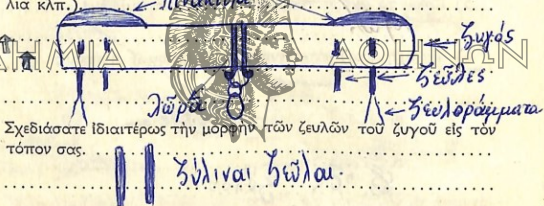 λια κλπ.).
ΔΗΜΙΑ ΑΘΗΝΩΝ
ζυγός
ζεῦλες
λῶρα
ζευλοράμματα
Σχεδιάσατε ἰδιαιτέρως τὴν μορφὴν τῶν ζευλῶν τοῦ ζυγοῦ εἰς τὸν
τόπον σας.
ξύλιναι ζεῦλαι.